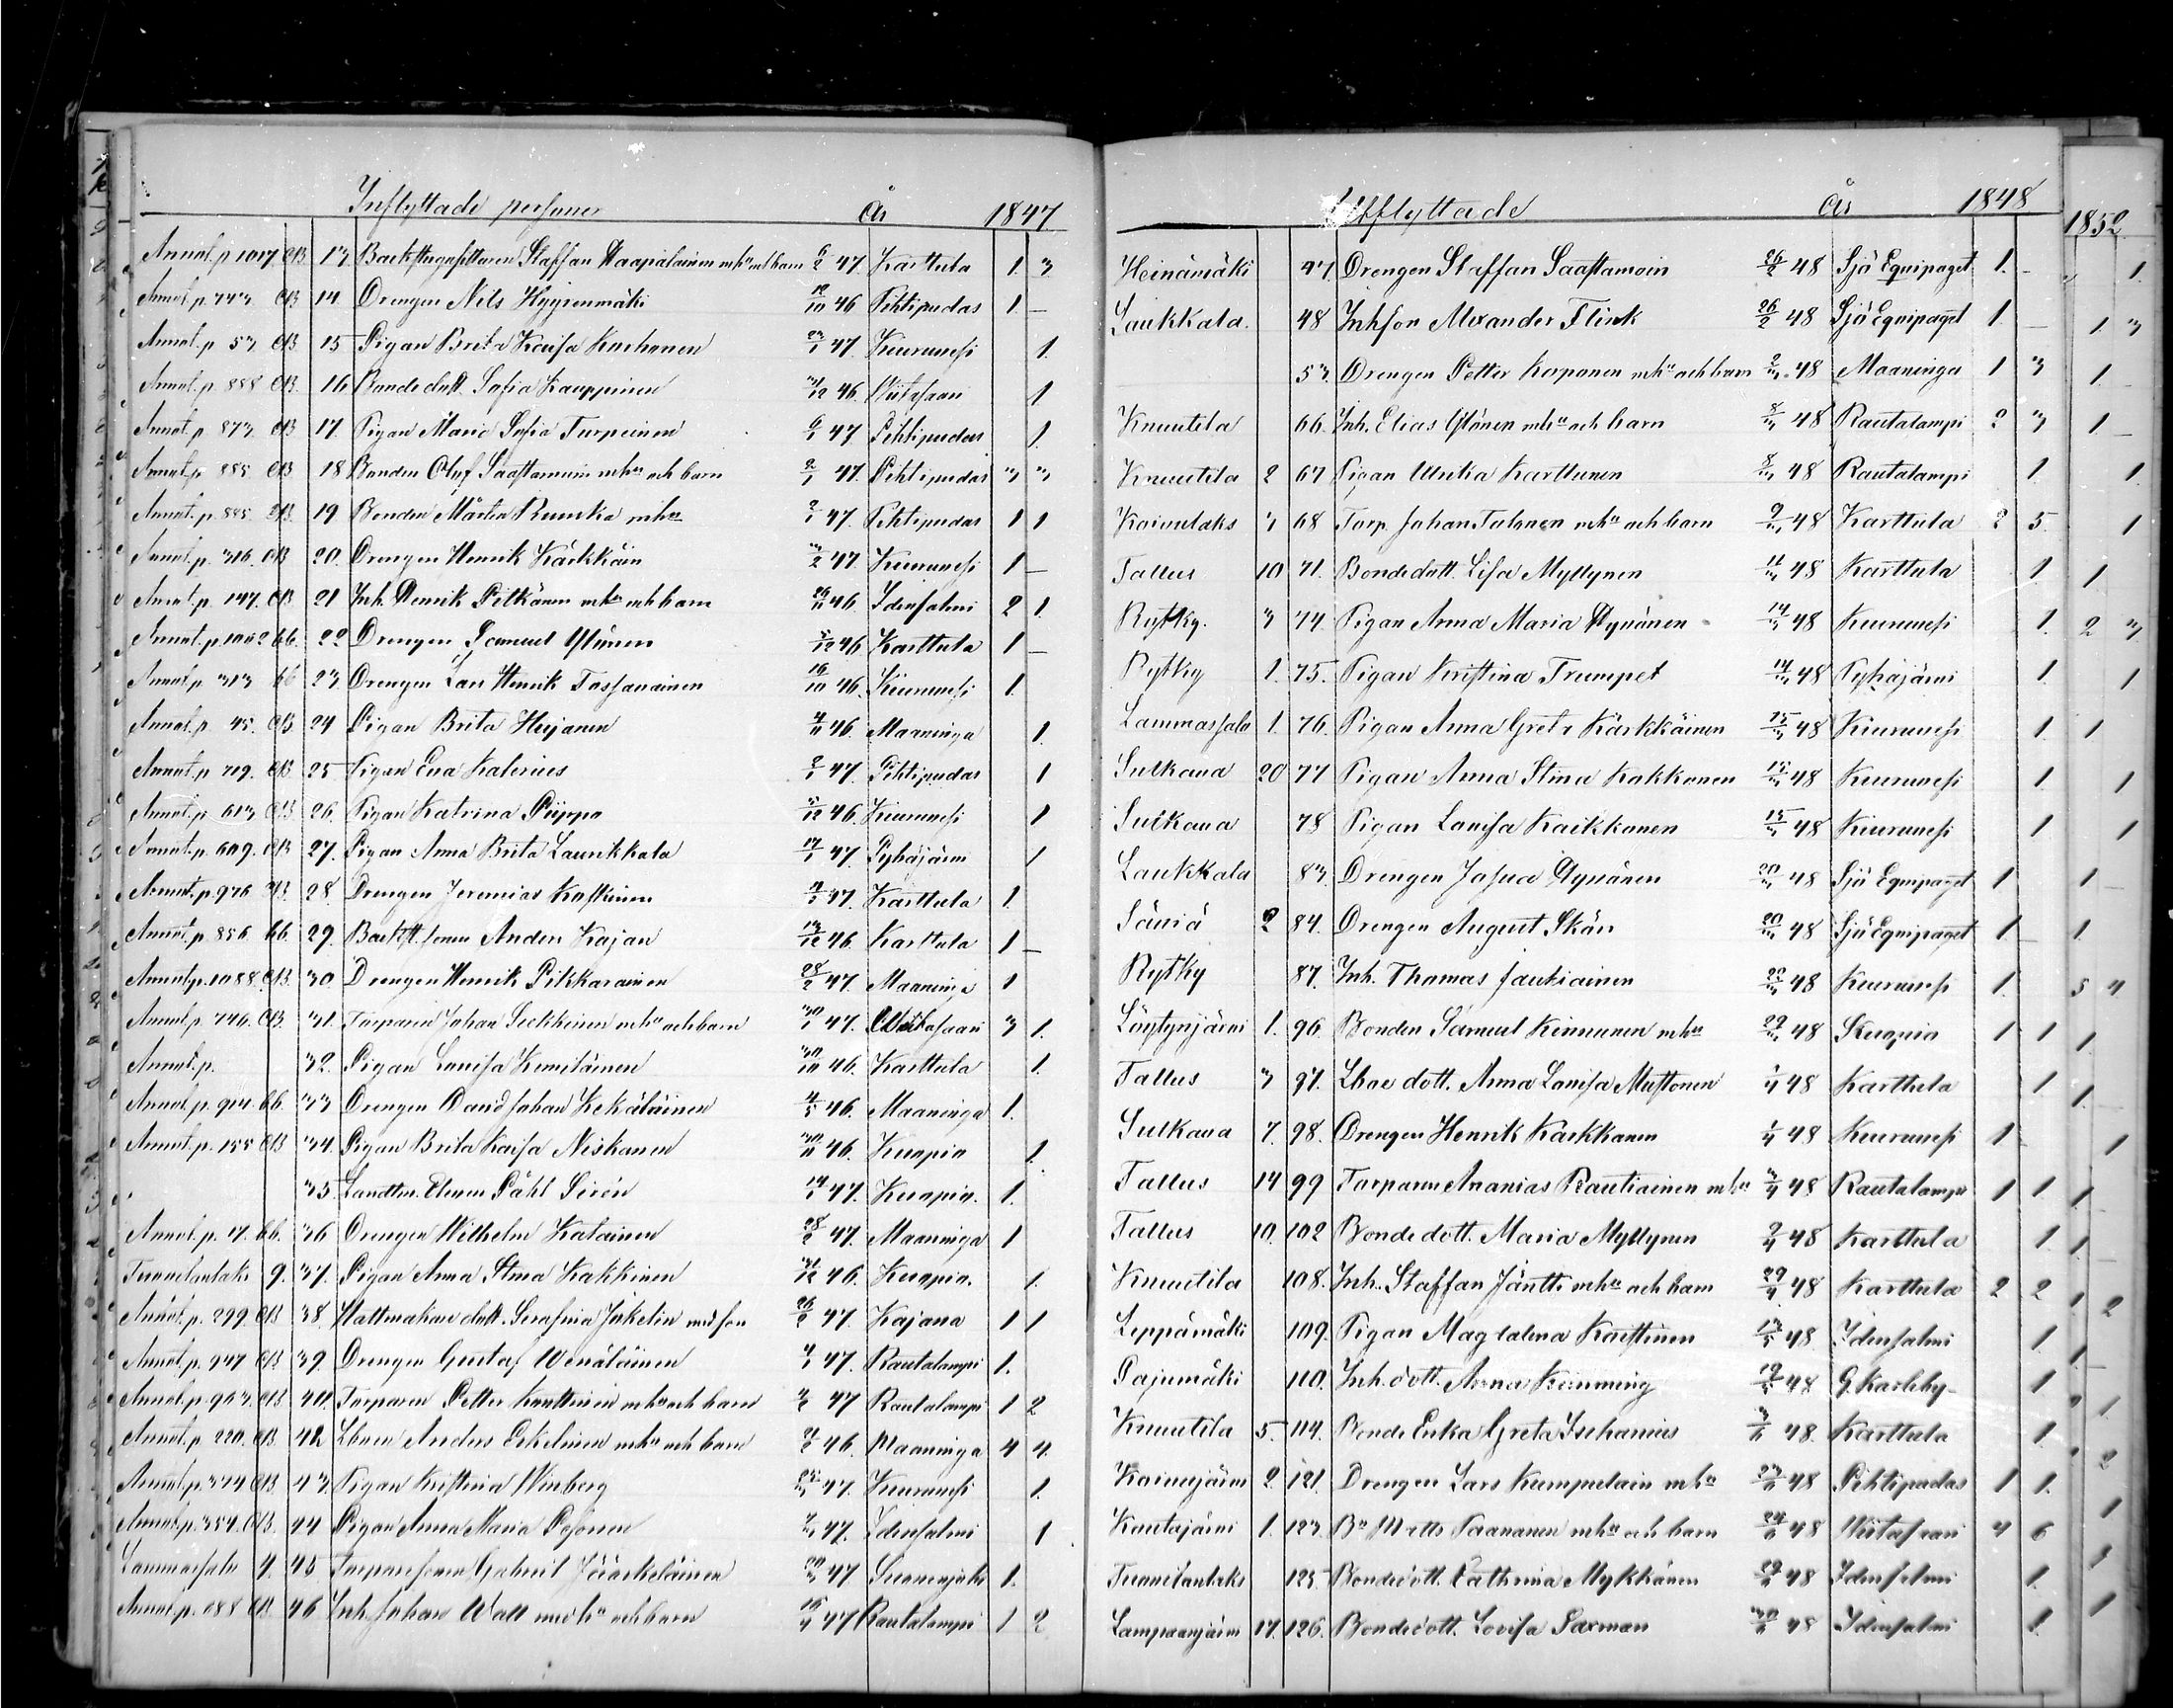 Inflyttade personer År 1847
Annot. p 1017 CB 13 Backstugusittaren Staffan Haapalainen mhu och barn 6/2 47. Karttula 1. 3
Annot. p. 743 CB 14. Drengen Nils Hyyrenmäki 12/10 46 Pihtipudas 1 –
Annot. p 53 CB 15 Pigan Brita Kaisa Karhonen 23/1 47. Kiuruvesi 1.
Annot. p. 888 CB. 16 Bondedott. Sofia Kauppinen 31/12 46. Viitasaari 1
Annot. p 873. CB 17. Pigan Maria Sofia Turpeinen 6/1 47 Pihtipudas 1.
Annot. p 885 CB 18 Bonden Oluf Saastamoin mhu och barn 2/1 47. Pihtipudas 3 3
Annot. p. 885 CB. 19 Bonden Mårten Ruuska mhu 2/1 47. Pihtipudas 1 1
Annot. p. 316. CB 20. Drengen Henrik Kärkkäin 3/2 47. Kiuruvesi 1 –
Annot. p. 147. CB 21 Inh. Henrik Pitkänen mhu och barn 29/11 46. Idensalmi 2 1.
Annot. p. 1002 bb. 22 Drengen Samuel Ylönen 5/12 46 Karttula 1 –
Annot. p. 313 bb 23. Drengen Lars Henrik Tossavainen 16/10 46. Kiuruvesi 1.
Annot. p. 45. CB. 24 Pigan Brita Heyanen 4/11 46. Maaninga 1.
Annot. p 719. CB 25 Pigan Eva Kalenius 2/1 47. Pihtipudas 1
Annot. p. 613 CB 26. Pigan Katrina Piippo 5/12 46. Kiuruvesi 1
Annot. p. 609. CB 27. Pigan Anna Brita Laurikkala 17/1 47. Pyhäjärvi 1
Annot. p. 976 CB. 28. Drengen Jeremias Koskinen 47. Karttula 1.
Annot. p. 856. bb. 29. Backst. sonen Anders Kajan 13/12 46. Karttula 1 –
Annot. p. 1088. CB. 30. Drengen Henrik Pikkarainen 28/2 47. Maaninga 1
Annot. p. 746. CB. 31. Torparen Johan Leskinen mhu och barn 30/1 47. Wiitasaari 3 1.
Annot. p. 32. Pigan Lovisa Komulainen 30/10 46. Karttula 1.
Annot. p. 914. bb. 33 Drengen David Johan Kekäläinen 4/5 46. Maaninga 1.
Annot. p. 155 CB 34. Pigan Brita Kaisa Niskanen 30/11 46. Kuopio 1.
35. Landtm. Eleven Påhl Sirén 14/1 47. Kuopio. 1.
Annot. p. 17. bb. 36 Drengen Wilhelm Kalainen 28/2 47. Maaninga 1
9. 37. Pigan Anna Stina Kakkinen 31/12 46. Kuopio. 1.
Annot. p. 299. CB 38. Hattmakare dott. Serafina med son 26/2 47. Kajana 1 1
Annot. p. 947 CB 39. Drengen Gustaf Wenäläinen 47. Rautalampi 1.
Annot. p. 963. CB 40. Torparen Petter Konttinen mhu och barn 47 Rautalampi 1 2
Annot. p. 220. CB 42 Anders Eskelinen mhu och barn 46. Maaninga 4 4.
Annot. p. 374 CB 43. Pigan Kristina Winberg 25/3 47. Kiuruvesi 1.
Annot. p. 354. CB. 44 Pigan Anna Maria Pesonen 47. Idensalmi 1
Lammassalo 4. 45 Torpare sonen Gabriel Jääskeläinen 20/3 47 1.
Annot. p. 688 CB 46 Inh. Johan Watt med hu och barn 16/4 47 Rautalampi 1 2
Utflyttade År 1848
Heinämäki 47. Drengen Staffan Saastamoin 26/2 48 Sjö Equipaget 1. –
Laukkala. 48 Inhson Alexander Flink 26/2 48 Sjö Equipaget 1. –
53. Drengen Petter Korponen mhu och barn 2/3 48 Maaninga 1 3
Knuutila 66. Inh. Elias Ylönen mhu och barn 8/3 48 Rautalampi 2 3
Knuutila 2 67 Pigan Ulrika Karttunen 8/3 48 Rautalampi 1.
Koivulaks 3 68 Torp. Johan Tolonen mhu och barn 9/3 48 Karttula 2 5.
Tallus 10 71. Bondedott. Lisa Myllynen 11/3 48 Karttula 1
Rytky. 3 74. Pigan Anna Maria Hynänen 14/3 48 Kiuruvesi 1.
Rytky 1. 75. Pigan Kristina Trumpet 14/3 48 Pyhäjärvi 1.
Lammassalo 1. 76. Pigan Anna Greta Kärkkäinen 15/3 48 Kiuruvesi 1.
Sulkava 20 77 Pigan Anna Stina Kakkonen 15/3 48 Kiuruvesi 1.
Sulkava 78 Pigan Lovisa Kaikkonen 15/3 48 Kiuruvesi 1
Laukkala 83. Drengen Josua Hynänen 20/3 48 Sjö Equipaget 1
Säviä 2 84. Drengen August Skön 20/3 48 Sjö Equipaget 1. –
Rytky 87. Inh. Thomas Jautiainen 22/3 48 Kiuruvesi 1.
Löytynjärvi 1. 96. Bonden Samuel Kinnunen mhu 29/3 48 Kuopio 1 1
Tallus 3 97. Lboe dott. Anna Lovisa Mustonen 1/4 48 Karttula 1
Sulkava 7. 98. Drengen Henrik Kaikkonen 1/4 48 Kiuruvesi 1
Tallus 14 99 Torparen Ananias Rautiainen mhu 3/4 48 Rautalampi 1 1
Tallus 10. 102 Bondedott. Maria Myllynen 2/4 48 Karttula 1.
Knuutila 108. Inh. Staffan Jäntti mhu och barn 29/4 48 Karttula 2 2
Leppämäki 109. Pigan Magdalena Konttinen 13/5 48 Idensalmi 1.
Pajumäki 110. Inh. dott. Anna Könninng 19/5 48 G. Karleby 1
Knuutila 5. 114. Bonde Enka Greta Ischanius 3/6 48. Karttula 1.
Koivujärvi 2. 121. Drengen Lars Kumpulain mhu 23/6 48 Pihtipudas 1 1.
Koutajärvi 1. 123. Bn Matts Paananen mhu och barn 24/6 48 Wiitasaari 4 6
125 Bondedott. Cathrina Mykkänen 29/6 48 Idensalmi 1.
Lampaanjärvi 17. 126. Bondedott. Lovisa Saxman 30/6 48 Idensalmi 1.
1852